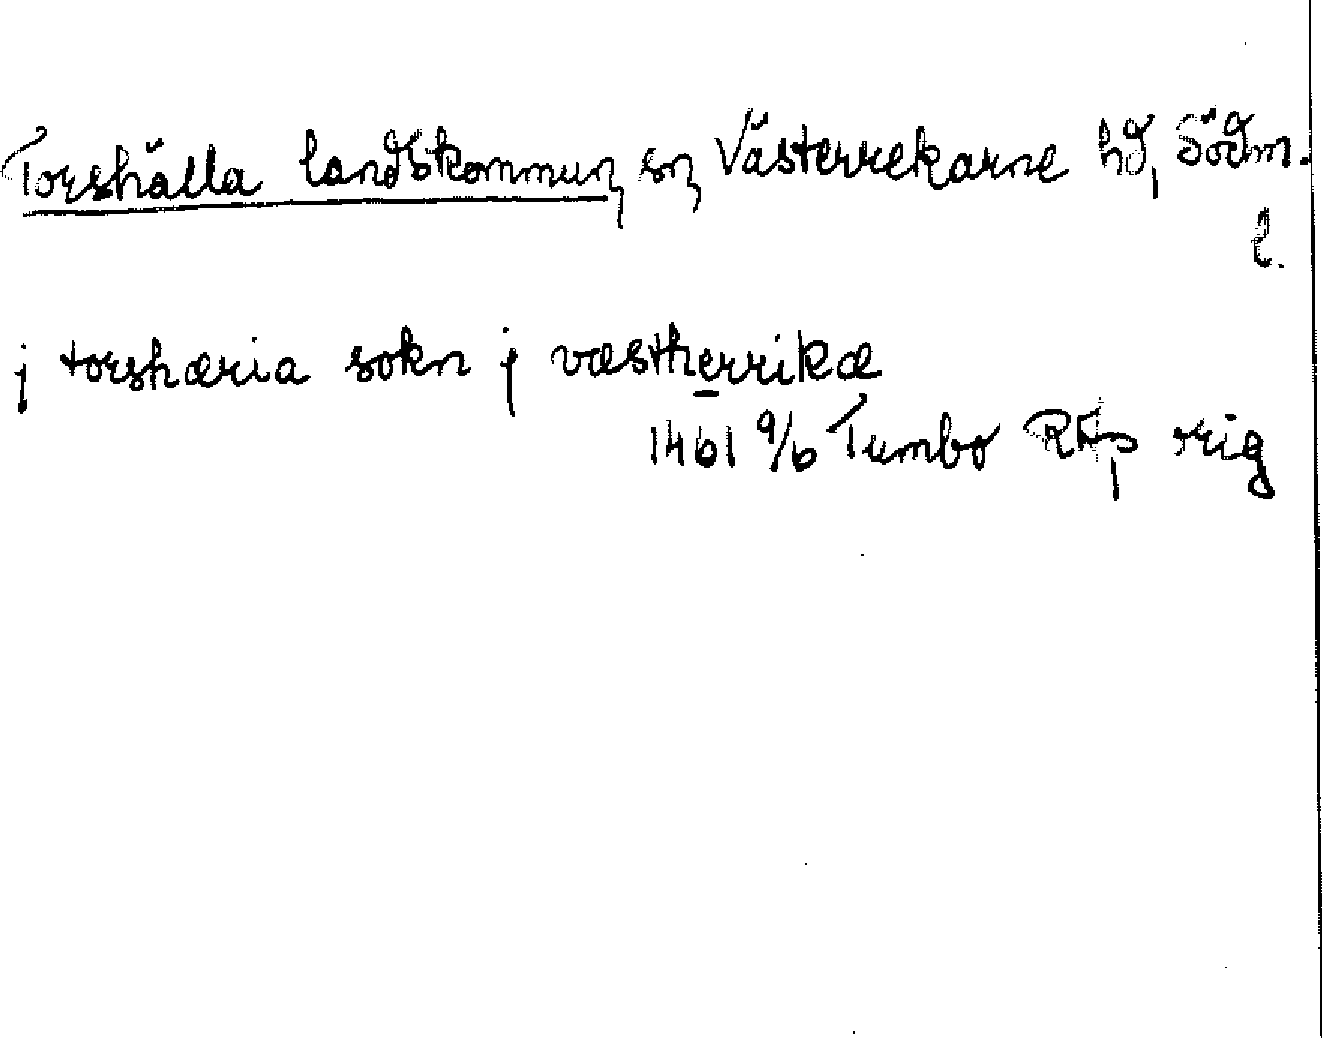 Torshälla landskommun, sn, Västerrekarne hd, Södm.
l.
j torshæria sokn j væstherrikæ
1461 9/6 Tumbo RAp orig